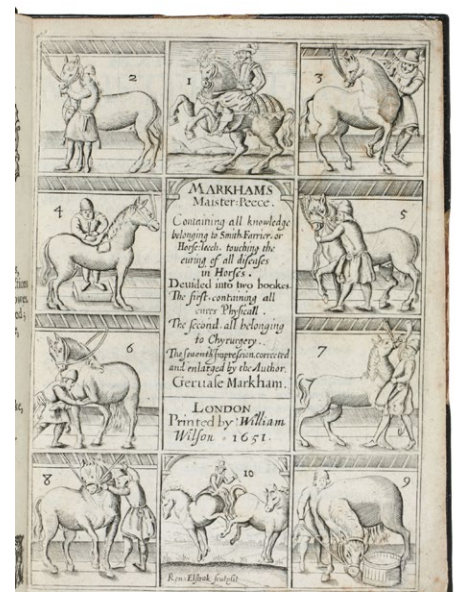 2
1
3
MARKHAMS
Maister-Peece.
Containing all knowledge
belonging to Smith Farrier, or
Horse-leech, touching the
curing of all diseases
in Horses.
Deuided into two bookes.
The first containing all
cures Physicall.
The second all belonging
to Chyrurgery.
The seventh impression, corrected
and enlarged by the Author.
Geruase Markham.
LONDON
Printed by William
Wilson. 1651.
4
5
6
7
8
10
9
Ren: Elstrak sculpsit